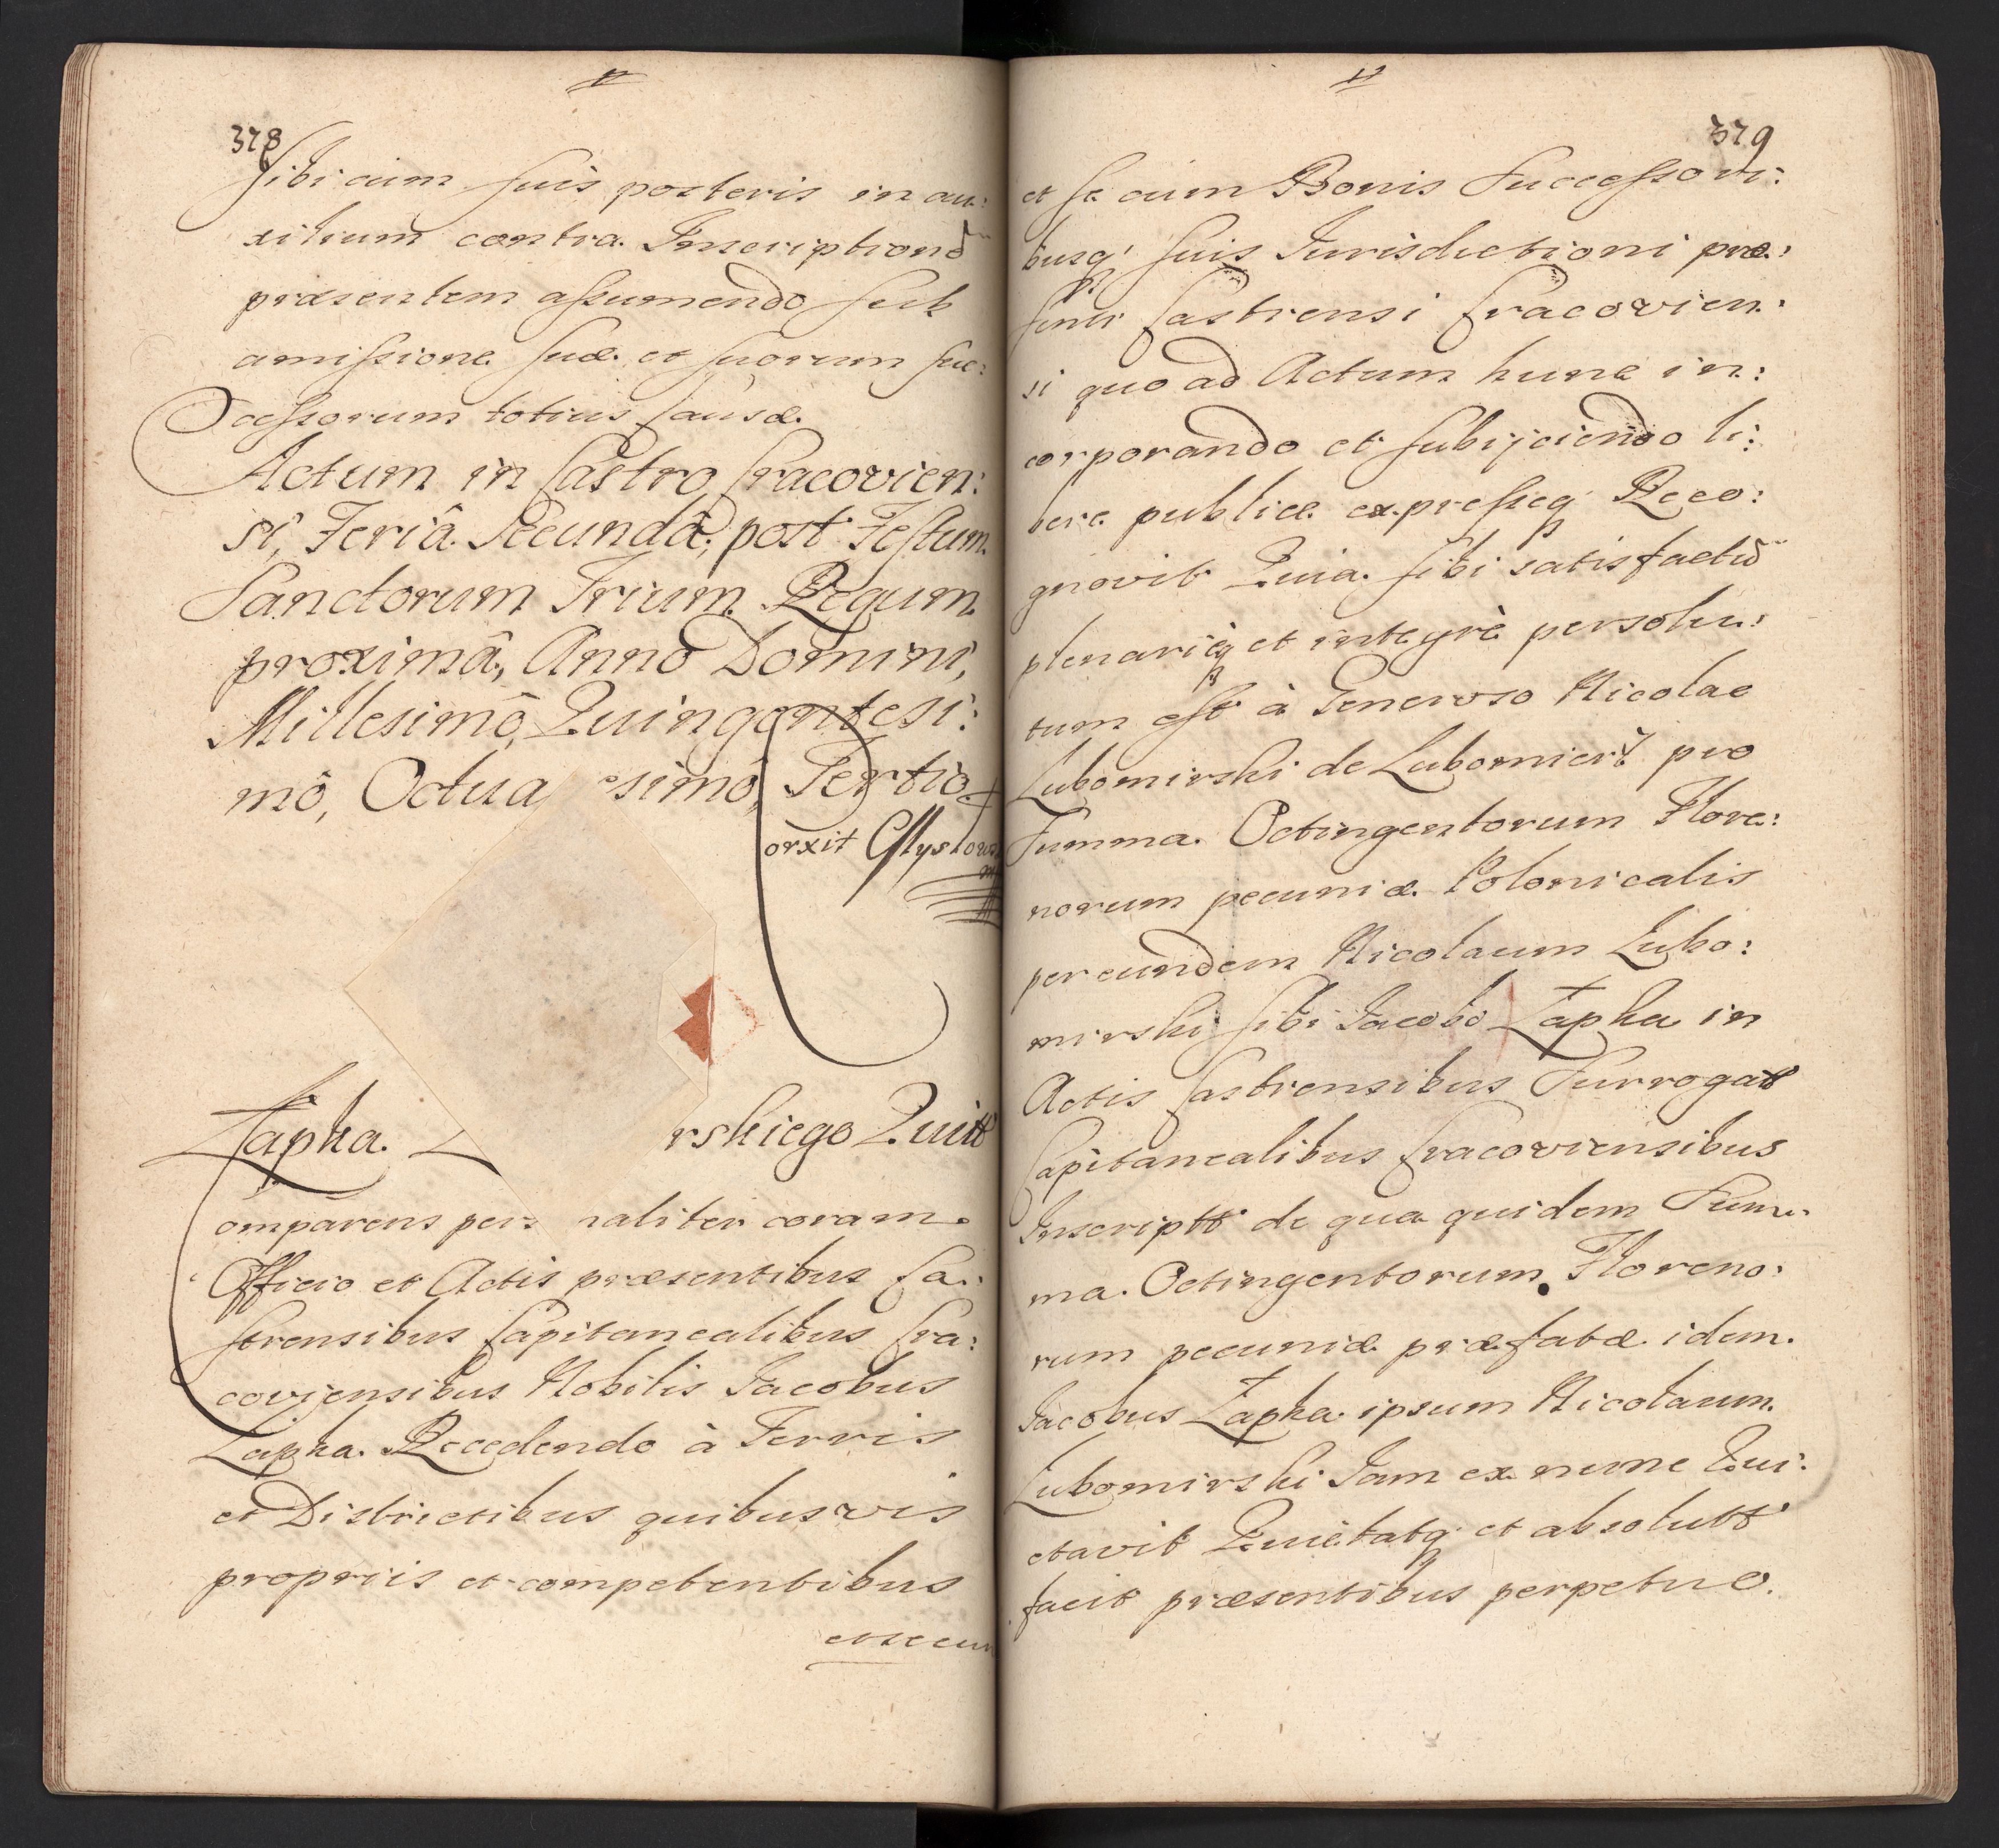 378
sibi cum suis posteris in au:
xilium contra Inscriptionẽ
præsentem assumendo sub
amissione suæ et suorum suc:
cessorum totius Causæ.
Actum in Castro Cracovien:
si, Feriâ Secundâ, post Festum
Sanctorum Trium Regum
proximâ, Anno Domini,
Millesimô, Quingentesi:
mô, Octua simô, Tertio.
orxit
Łapka. L rskiego Quitt
omparens per naliter coram
Officio et Actis præsentibus Ca:
strensibus Capitanealibus Cra:
coviensibus Nobilis Jacobus
Łapka. Recedendo à Terris
et Districtibus quibusvis
propriis et competentibus
et se cum
379
et se cum Bonis Successori:
busq' suis Jurisdictioni præ:
senti Castrensi Cracovien:
si quo ad Actum hunc in:
corporando et subijciendo li:
bere publicæ expresseq Reco:
gnovit Quia sibi satisfactũ
plenarieq et integrè persolu:
tum est à Generoso Nicolao
Lubomirski de Lubomierz pro
Summa Octingentorum Flore:
norum pecuniæ Polonicalis
per eundem Nicolaum Lubo:
mirski sibi Jacobo Łapka in
Actis Castrensibus Surrogat
Capitanealibus Cracoviensibus
Inscriptt de qua quidem Sum:
ma Octingentorum Floreno:
rum pecuniæ præfatæ idem
Jacobus Łapka ipsum Nicolaum
Lubomirski Jam ex nunc Qui:
etavit Quiètatq et absolutt
facit præsentibus perpetuo.